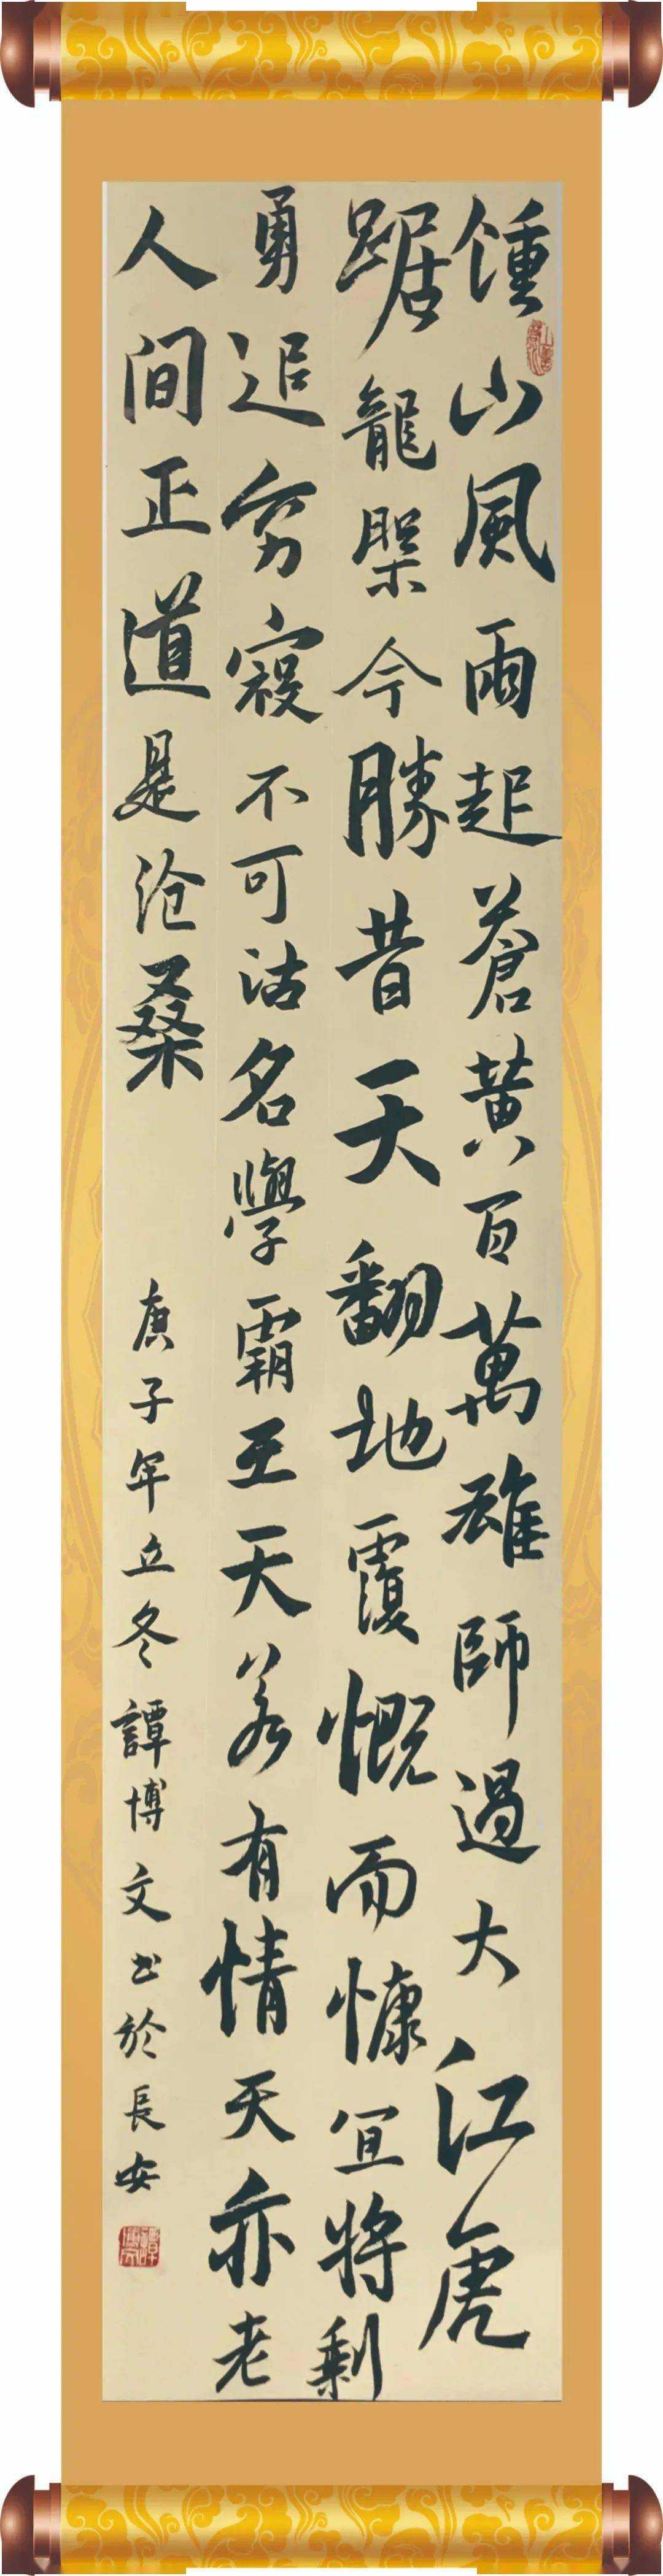 锺山風雨起蒼黄百萬雄師過大江虎
踞龍槃今勝昔天翻地覆慨而慷宜将剩
勇追穷寇不可沽名學霸王天若有情天亦老
人间正道是沧桑 庚子年立冬譚博文书於長安